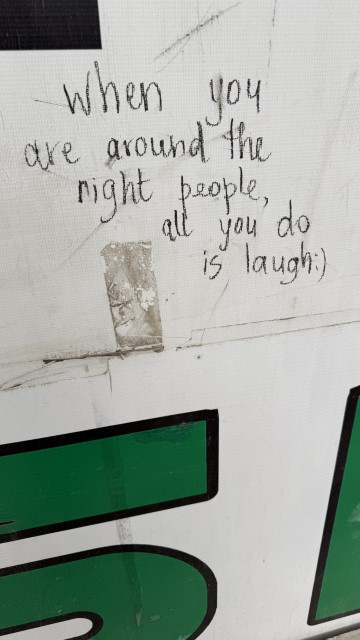 When you
are around the
right people,
all you do
is laugh:)